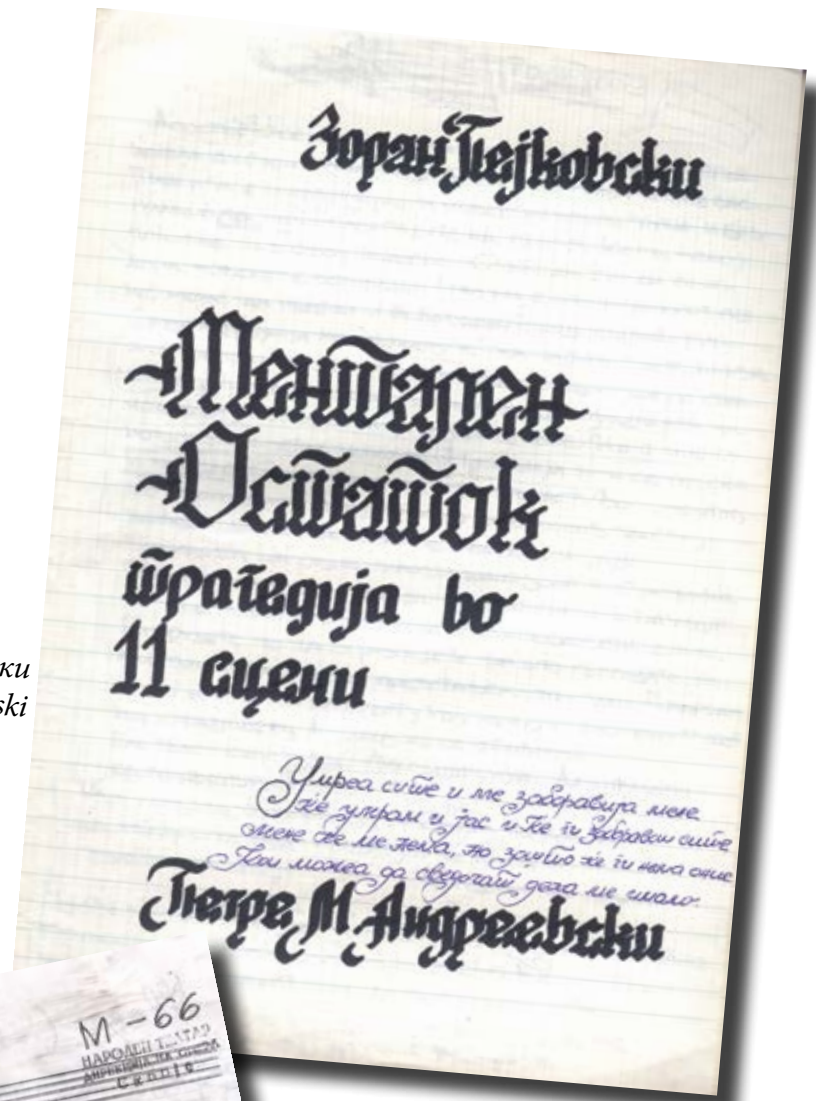 Зоран Пејковски
Ментален
Остаток
трагедија во
11 сцени
ки
ski
Умреа сите и ме заборавија мене
Ќе умрам и јас и ќе ги заборавам сите
Мене ќе ме нема, но зошто ќе ги нема оние
Кои можеа да сведочат дека ме имало.
Петре М Андреевски
М - 66
НАРОДЕН ТЕАТАР
Скопје